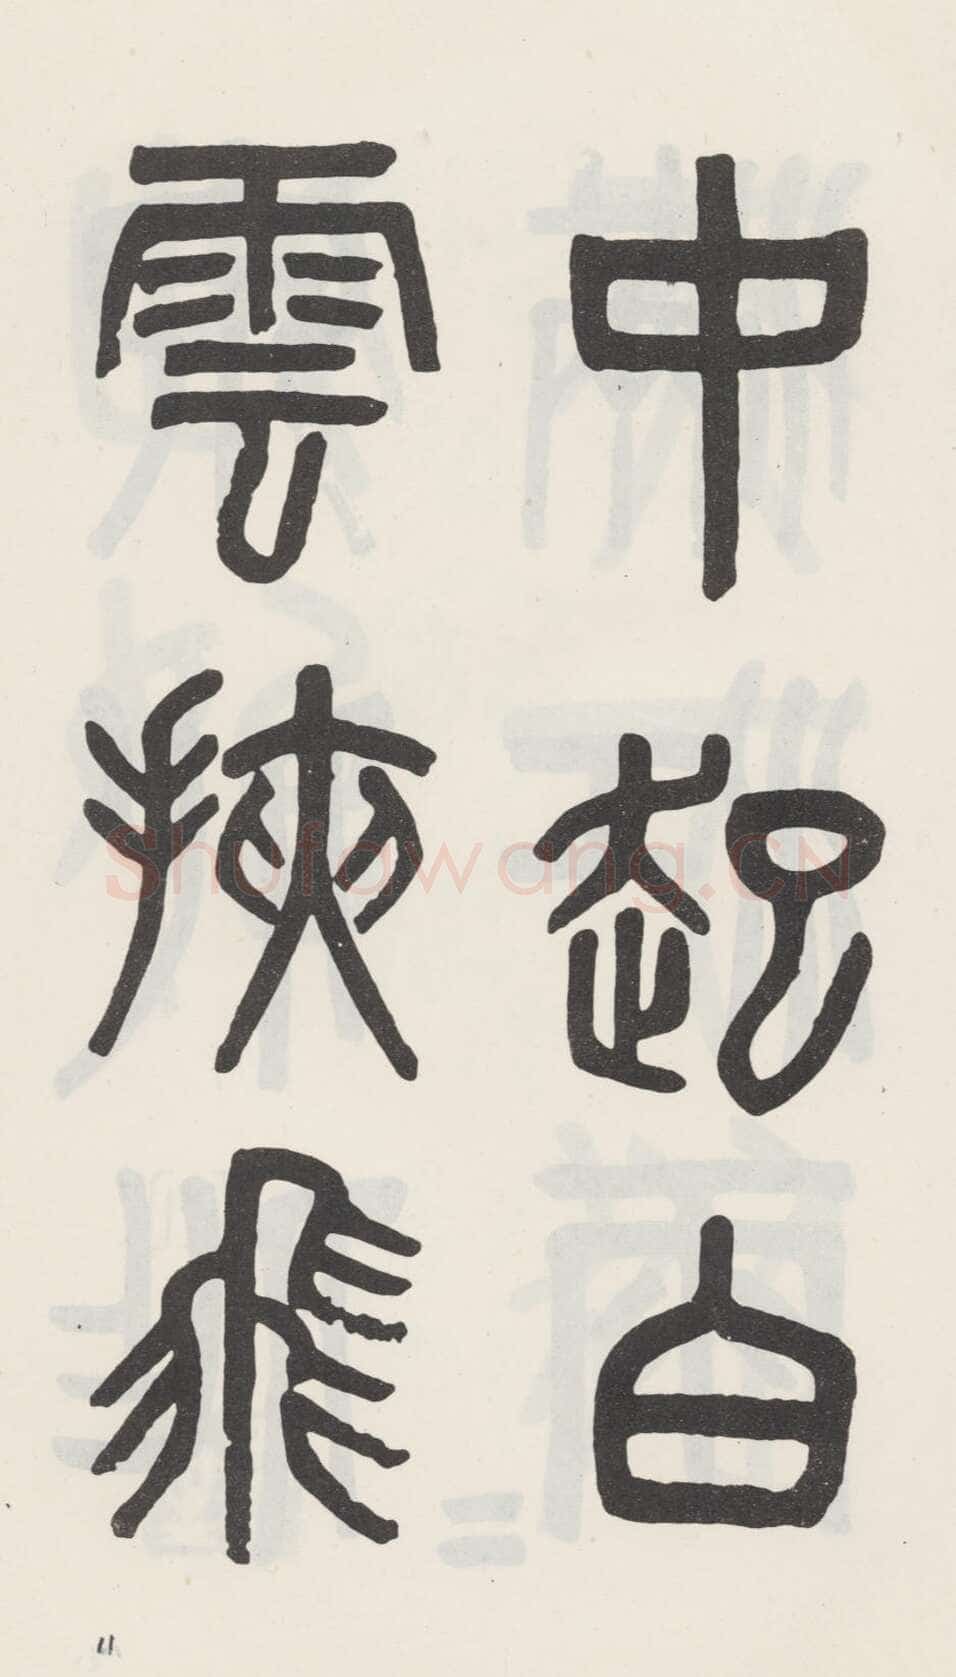 中起白
雲挾飛
Shufawang.CN